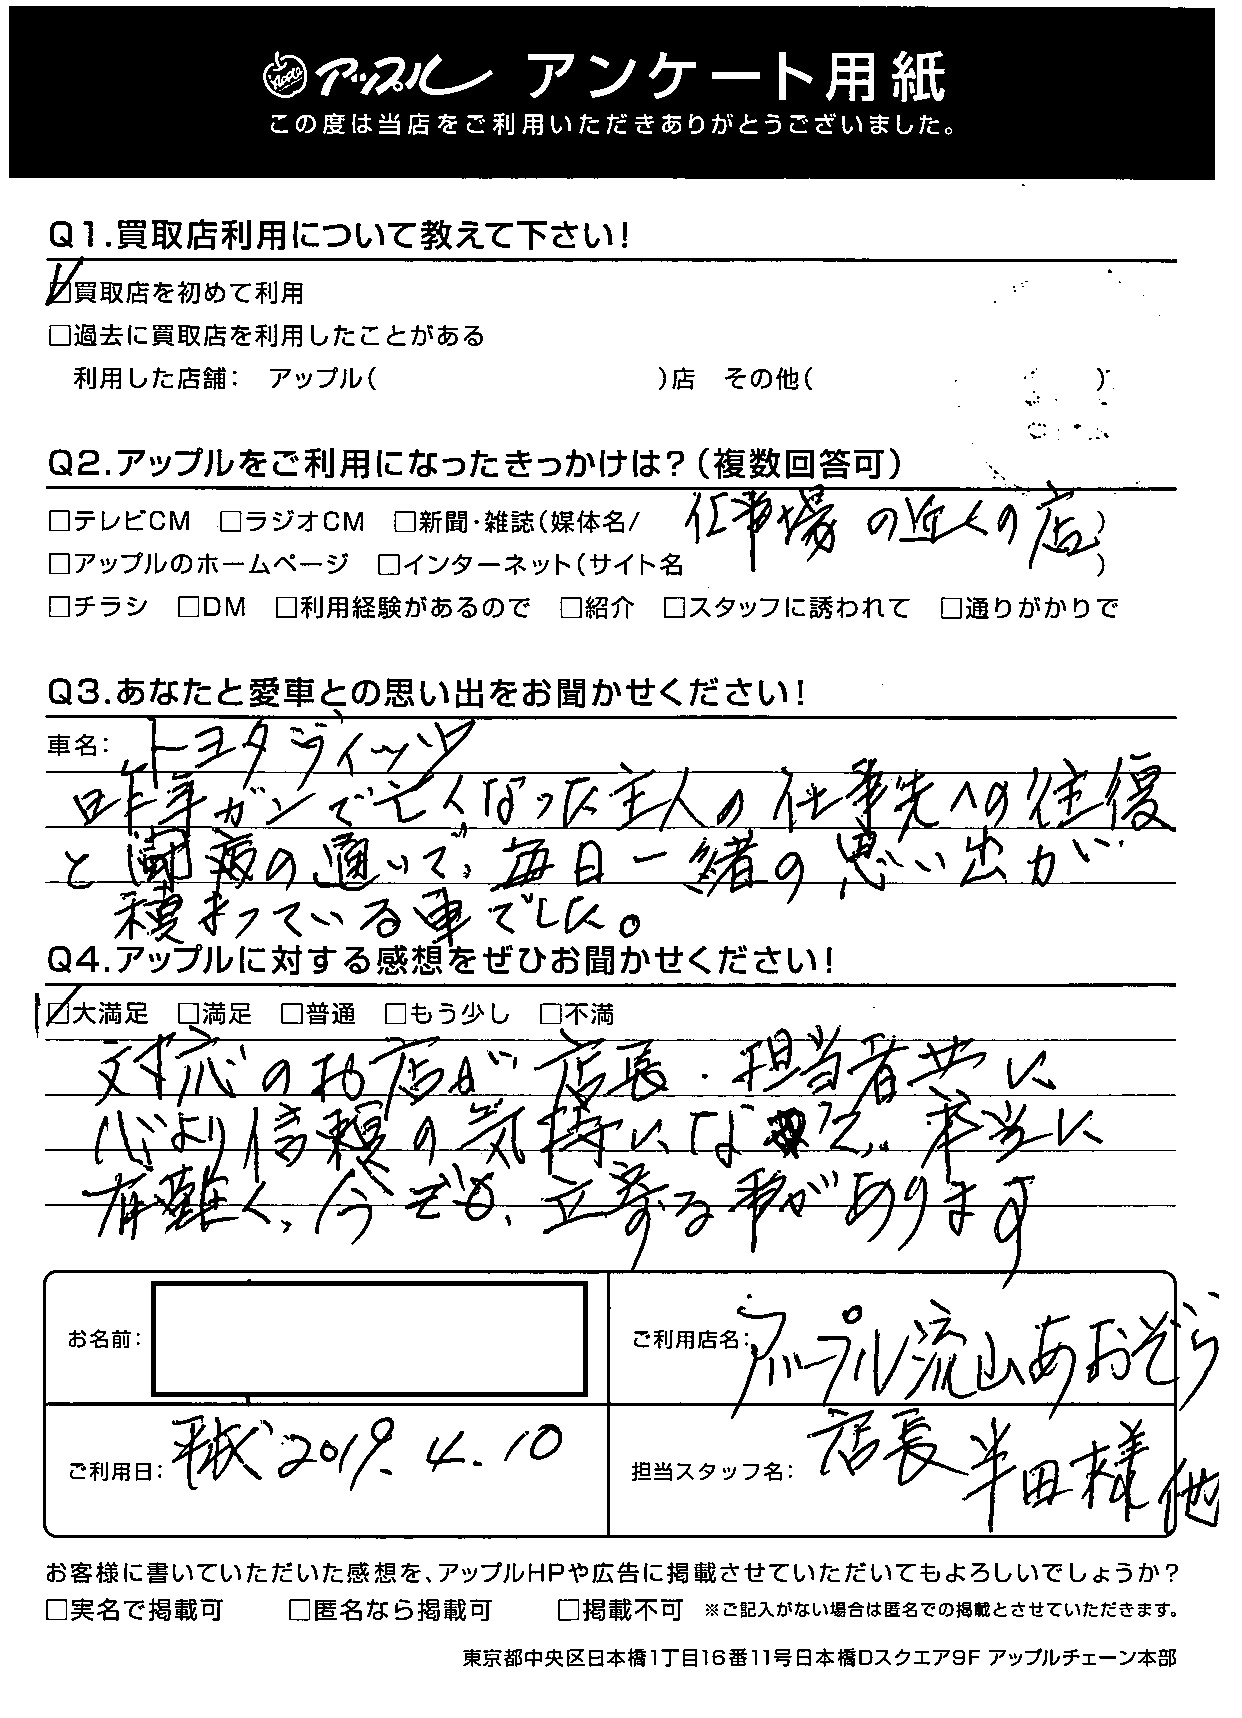 Apple アップル アンケート用紙
この度は当店をご利用いただきありがとうございました。
Q1.買取店利用について教えて下さい!
☑買取店を初めて利用
□過去に買取店を利用したことがある
利用した店舗: アップル( )店 その他( )
Q2.アップルをご利用になったきっかけは?(複数回答可)
□テレビCM □ラジオCM □新聞・雑誌(媒体名/ 仕事場の近くの店)
□アップルのホームページ □インターネット(サイト名 )
□チラシ □DM □利用経験があるので □紹介 □スタッフに誘われて □通りがかりで
Q3.あなたと愛車との思い出をお聞かせください!
車名: トヨタヴィッツ
昨年ガンで亡くなった主人の仕事先への往復
と闘病の通いで、毎日一緒の思い出が
積まっている車でした。
Q4.アップルに対する感想をぜひお聞かせください!
☑大満足 □満足 □普通 □もう少し □不満
対応のお店が店長・担当者共に
心より信頼の気持になって、本当に
有難く、今でも、立寄る事があります
お名前: ご利用店名: アップル流山あおぞら
ご利用日: 平成2019.4.10 担当スタッフ名: 店長半田様他
お客様に書いていただいた感想を、アップルHPや広告に掲載させていただいてもよろしいでしょうか?
□実名で掲載可 □匿名なら掲載可 □掲載不可 ※ご記入がない場合は匿名での掲載とさせていただきます。
東京都中央区日本橋1丁目16番11号日本橋Dスクエア9F アップルチェーン本部